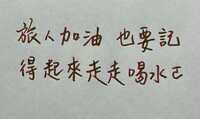 旅人加油 也要記
得起來走走喝水